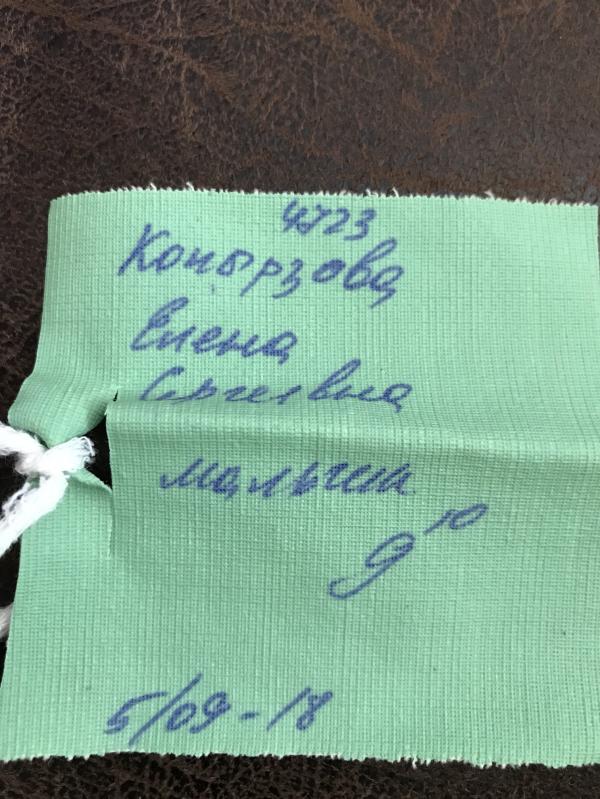 4723
Копырзова
Елена
Сергеевна
мальчик
9 10
5/09-18